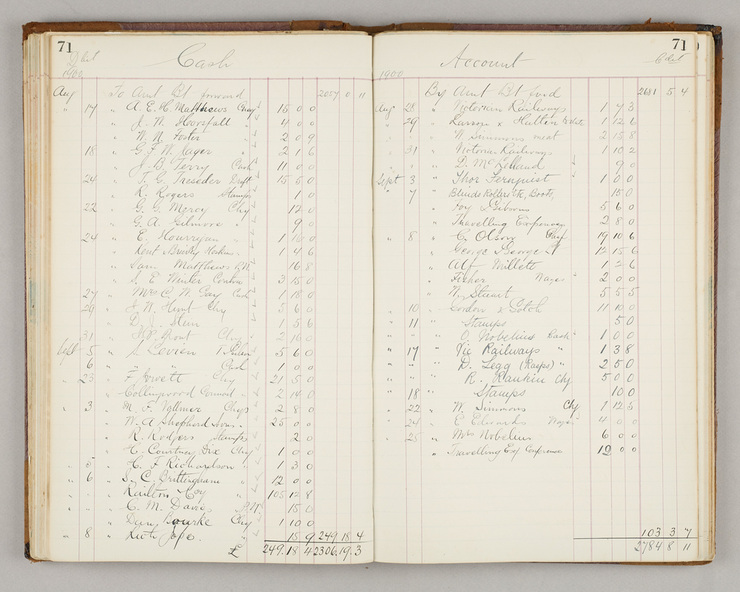 71
Debit Cash
1900
Aug To Amt Bt forward 2057 0 11
" 17 " A. E. H. Matthews Chq 16 0 0
" J. W. Horsfall " 4 0 0
" W. N. Foster 2 0 9
" 18 " G. F. W. Cager " 2 1 6
" J. B. Terry Cash 11 0 0
" 24 " T. G. Treseder Draft 15 5 0
" R. Rogers Stamps 1 0
" 22 " G. G. Mercy Chq 12 0
" G. A. Gilmore " 9 0
" 24 " E. Hourryan " 1 0 0
" Kent Brierly 1 4 6
" Sam Matthews P.N. 16 8
" S. E. Winter 3 15 0
" 27 " Mrs C. W. Gay Cash 1 10 0
" 29 " J. N. Hunt Chq 5 6 0
" 1 5 6
" 31 " Grant Chq 2 10 0
Sept 5 " S. Levien 5 6 0
" 6 " " Cash 1 0 0
" 25 " F. Jowett Chq 21 5 0
" Collingwood 2 14 0
" 3 " M. F. Vollmer Chq 2 8 0
" W. A. Shepherd Sons " 25 0 0
" R. Rodgers Stamps 2 0
" H. Courtney Dix Chq 1 0 0
" 5 " H. F. Richardson " 1 3 0
" 6 " S. C. Brittingham " 12 0 0
" Renlton Coy " 105 12 8
" C. M. Davis P.N. 15 0
" Bourke Chq 1 10 0
" 8 " 18 9 249 18 4
£ 249. 18 4 2306. 19. 3
71
Account Credit
1900
By Amt Bt ford 2681 5 4
Aug 28 " Victorian Railways 1 7 3
" 29 " Hutton 1 12 6
" W Simmons meat 2 15 8
" 31 " Victorian Railways 1 10 2
" D. McLelland 9 0
Sept 3 " Thos Fernquist 1 0 0
" 7 " Blinds Rollers etc, Boots, 15 0
" Foy & Gibsons 5 6 0
" Travelling Expenses 2 8 0
" 8 " C. Olsen Chq 19 10 6
" George George 12 15 6
" Alf Willett 1 2 6
" Fisher Wages 2 0 0
" W. Stuart 5 5 5
" 10 " Gordon & Gotch 11 10 0
" 11 " Stamps 5 0
" O Nobelius Cash 1 0 0
" 17 " Vic Railways " 1 3 8
" D. Legg (Rasps) " 2 5 0
" R. Rankin Chq 5 0 0
" 18 " Stamps 10 0
" 22 " W. Simmons Chq 1 12 6
" 24 " E Edwards Wages 4 0 0
" 25 " Mrs Nobelius 6 0 0
" Travelling Exp 12 0 0
103 3 7
2784 8 11